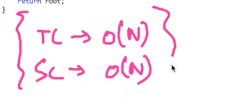 return root;
}
TC → O(N)
SC → O(N)